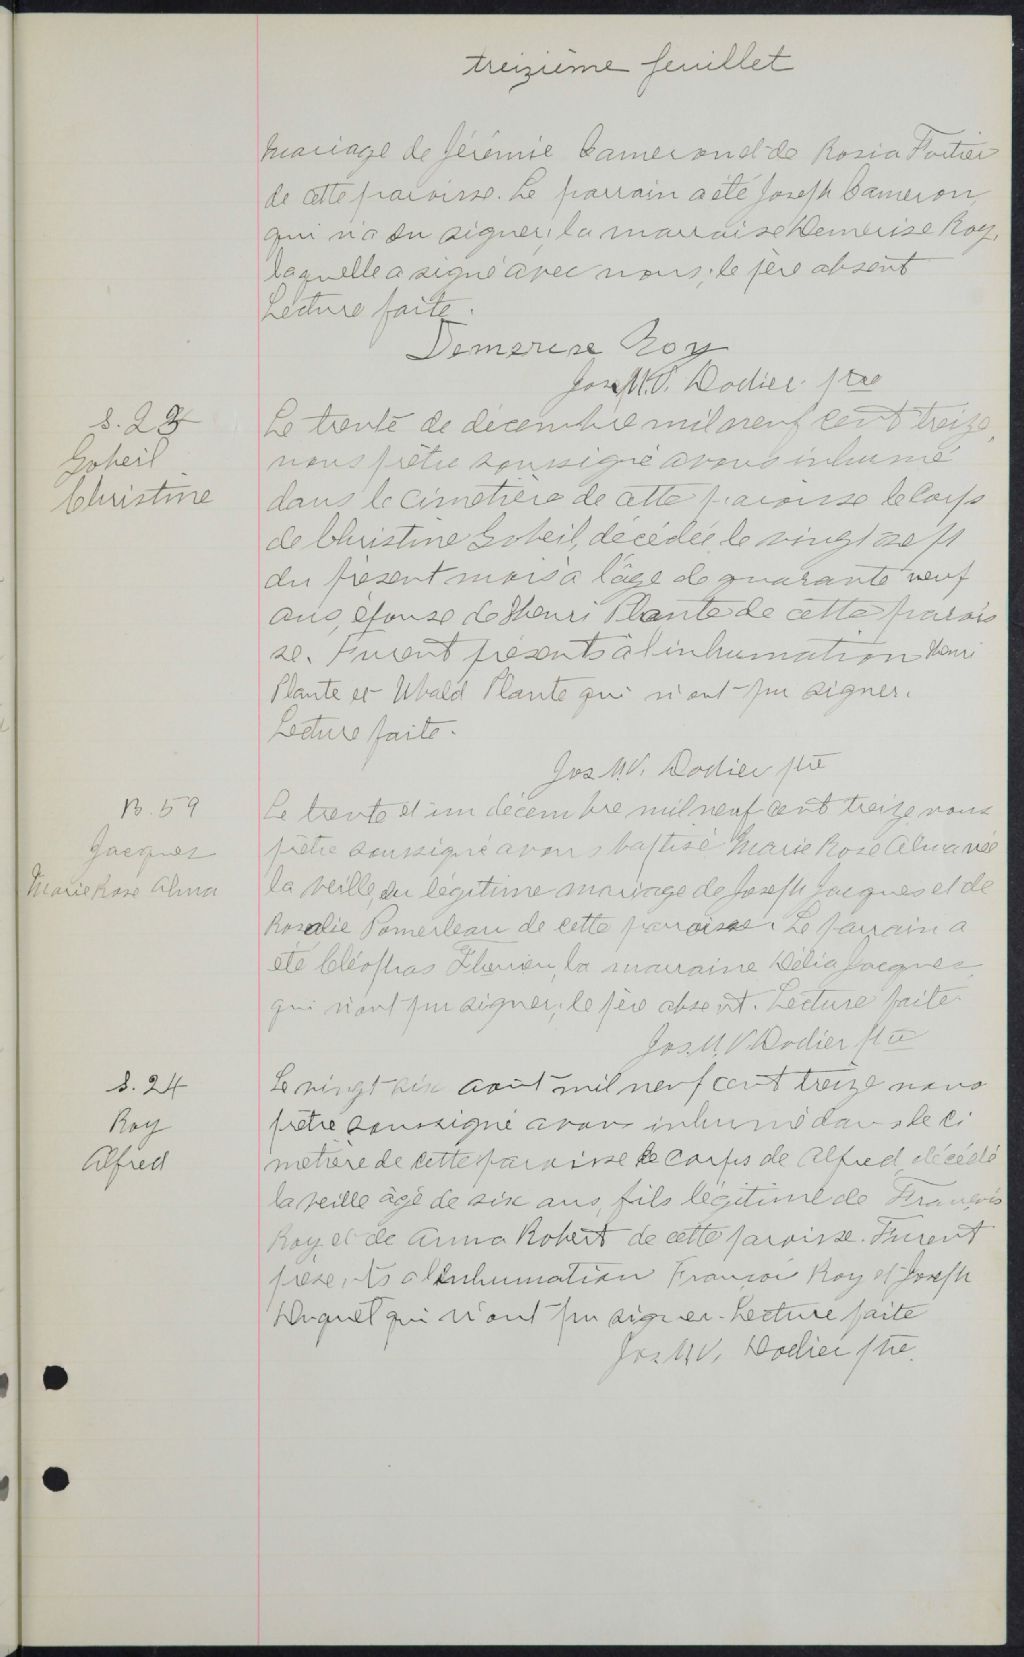 treizième feuillet
Mariage de Jérémie Cameron et de Rosia Fortier
de cette paroisse. Le parrain a été Joseph Cameron,
qui n'a su signer; la marraine Demerise Roy,
laquelle a signé avec nous; le père absent
Lecture faite.
Demerise Roy
Jos M.V. Dodier ptre
S. 23
Goheil
Christine
Le trente de décembre mil neuf cent treize,
nous prêtre soussigné avons inhumé
dans le cimetière de cette paroisse le corps
de Christine Goheil, décédée le vingt sept
du présent mois à l'âge de quarante neuf
ans, épouse de Henri Plante de cette parois
se. Furent présents à l'inhumation Henri
Plante et Ubald Plante qui n'ont pu signer.
Lecture faite.
Jos M.V. Dodier ptre
B. 59
Jacques
Marie Rose Alma
Le trente et un décembre mil neuf cent treize nous
prêtre soussigné avons baptisé Marie Rose Alma née
la veille, du légitime mariage de Joseph Jacques et de
Rosalie Pomerleau de cette paroisse. Le parrain a
été Cléophas Therrien, la marraine Délia Jacques
qui n'ont pu signer; le père absent. Lecture faite.
Jos. M.V. Dodier ptre
S. 24
Roy
Alfred
Le vingt six août mil neuf cent treize nous
prêtre soussigné avons inhumé dans le ci
metière de cette paroisse le corps de Alfred, décédé
la veille âgé de six ans, fils légitime de François
Roy et de Anna Robert de cette paroisse. Furent
présents a l'inhumation François Roy et Joseph
Duquet qui n'ont pu signer. Lecture faite
Jos M.V. Dodier ptre.